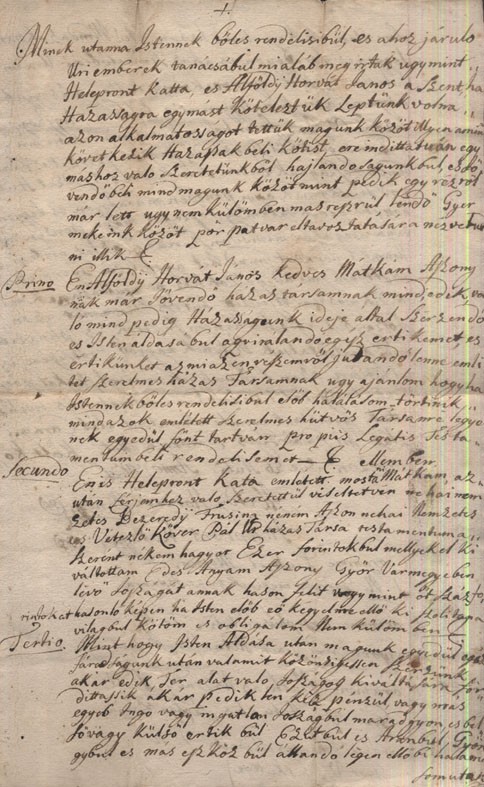 Minek utanna Istennek bölcs rendelisibül, es ahoz járulo
Uri emberek tanácsábul mi aláb meg irtak ugymint
Helepront Katta, es Alföldÿ Horvát Janos a Szent ha
Hazassagra egymást Köteleztük Leptünk volna
azon alkalmatossagot tettük magunk Között illyen amint
következik Hazassak beli Kötist, eremdittatván egy
mashoz valo Szeretetünkböl hajlandosagunkbul, es Jö
vendöbeli mind magunk Között mint pedik egy részröl
mar lett ugy nem külömben mas reszrül lendö Gyer
mekeink Közöt pör patvar eltavoztatására nezve
ni illik
Primo En Alföldÿ Horvát János Kedves Mátkám Aszony
nak már Jövendö hazas tarsamnak mind, va
lo mind pedig Hazassagunk ideje által Szerzendö
es Isten áldasabul egysz ertikemet es
ertikünket az mi az en részemröl Jutandó lenne emli
tet Szerelmes házas Társamnak ugy ajánlom hogy ha
Istennek bölcs rendelisibul elöl halálalom törtinik
mind azok emlétett Szerelmes hütvös Társamre legye
nek egyedül fönt tartván propriis Legatis Testa
mentum beli rendelisemet ellemben
Secundo En is Helepront Kata emletett mostan Mátkám az
után ferjemhez valo Szeretettül viseltetven néhai nem
zetes Dezeredÿ Frusina néném Aszon nehai Nemzetes
es Vetezlö Kövér Pál Ur házas Társa testamentuma
Szerént nékem hagyot Ezer forintokbul mellyeket Ki
váltottam Edes Anyám Aszony Györ Vármegyeben
levö Joszágát annak hason felit ugymint öt Száz fo
rintokat hasonló képen ha Isten elöb eö kegyelme elöl ki Szolitana
világbul kötöm es obligalom Nem külömben
Tertio Mint hogy Isten Aldása után magunk egyedül
fáradságunk után valamit közönsigessen Szerzünk
akar edik fer alat való Joszágog kiváltására for
dittassik akar pedik len kész pénzül vagy mas
egyeb Ingo vagy ingatlan Joszagbul maradgyon, es bel
sö vagy külsö ertik bül Ezüst bul es Aranbul, Gyön
gybul es mas eszköz bül állandó légen elöbbi halálom